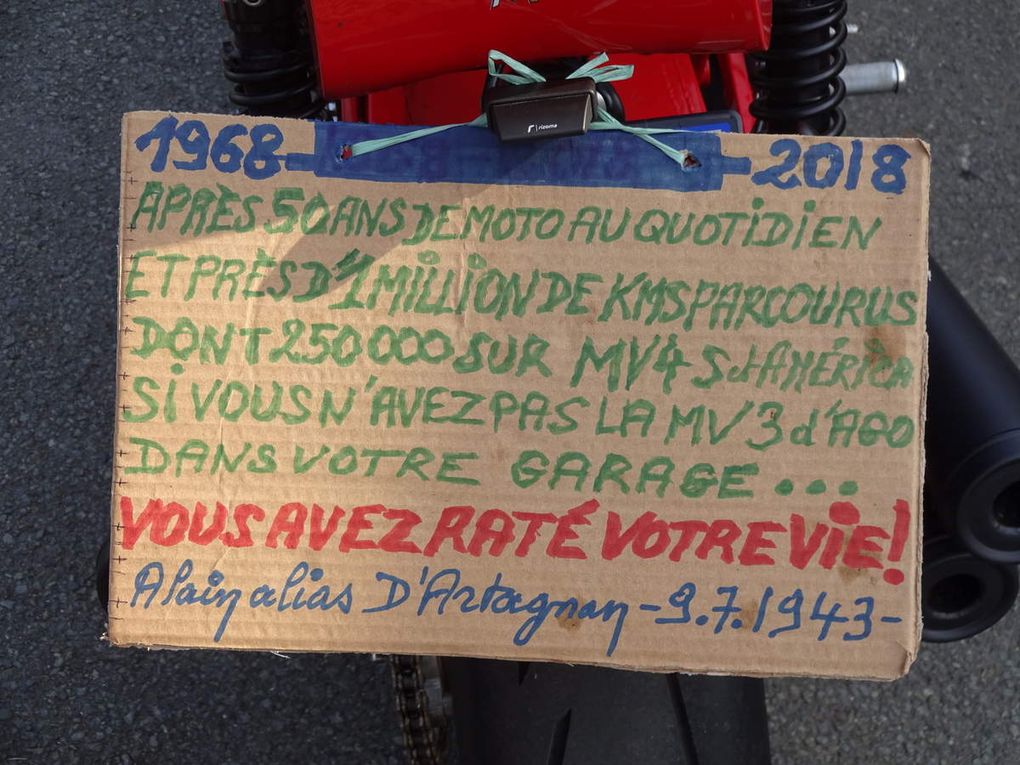 rizoma
1968 - - 2018
APRÈS 50 ANS DE MOTO AU QUOTIDIEN
ET PRÈS D'1 MILLION DE KMS PARCOURUS
DONT 250 000 SUR MV4 S d'AMÉRICA
SI VOUS N'AVEZ PAS LA MV 3 d'AGO
DANS VOTRE GARAGE ...
VOUS AVEZ RATÉ VOTRE VIE!
Alain alias D'Artagnan - 9.7.1943 -